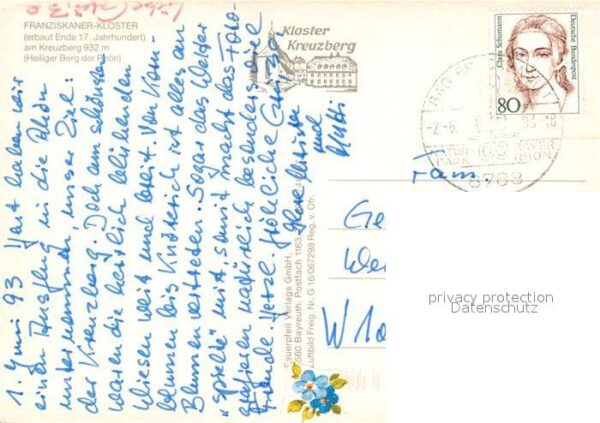 FRANZISKANER-KLOSTER
(erbaut Ende 17. Jahrhundert)
am Kreuzberg 932 m
(Heiliger Berg der Rhön)
Kloster
Kreuzberg
Clara Schumann
Deutsche Bundespost
80
8788
1. Juni 93 Heut haben wir
einen Ausflug in die Rhön
unternommen, unser Ziel:
der Kreuzberg. Doch am schönsten
waren die herrlich blühenden
Wiesen weit und breit. Von
blumen bis Knöterich ist alles an
Blumen vertreten. Sogar das Wetter
"spielte" mit, somit macht das Foto-
grafieren natürlich besonders viel
Freude. Herzl. fröhliche Grüße
Eure
und
Fam.
Sauerpfeil Verlags GmbH,
8580 Bayreuth, Postfach 1163,
Luftbild Freig. Nr. G 16/067298 Reg. v. Ofr.
W 10
privacy protection
Datenschutz